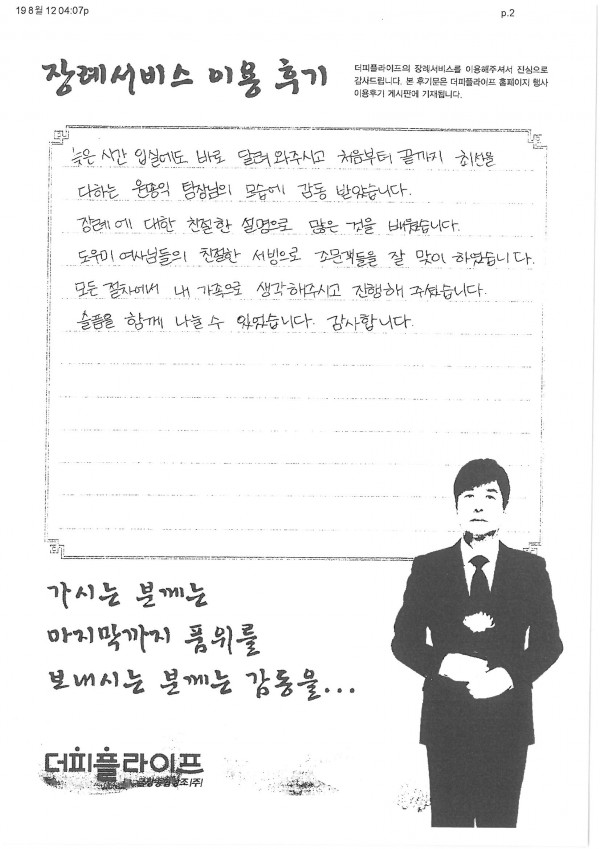 19 8월 12 04:07p
p.2
장례서비스 이용 후기
더피플라이프의 장례서비스를 이용해주셔서 진심으로
감사드립니다. 본 후기문은 더피플라이프 홈페이지 행사
이용후기 게시판에 기재됩니다.
늦은 시간 입실에도 바로 달려 와주시고 처음부터 끝까지 최선을
다하는 팀장님의 모습에 감동 받았습니다.
장례에 대한 친절한 설명으로 많은 것을 배웠습니다.
도우미 여사님들의 친절한 서빙으로 조문객들을 잘 맞이 하였습니다.
모든 절차에서 내 가족으로 생각해주시고 진행해 주셨습니다.
슬픔을 함께 나눌 수 있었습니다. 감사합니다.
가시는 분께는
마지막까지 품위를
보내시는 분께는 감동을...
더피플라이프